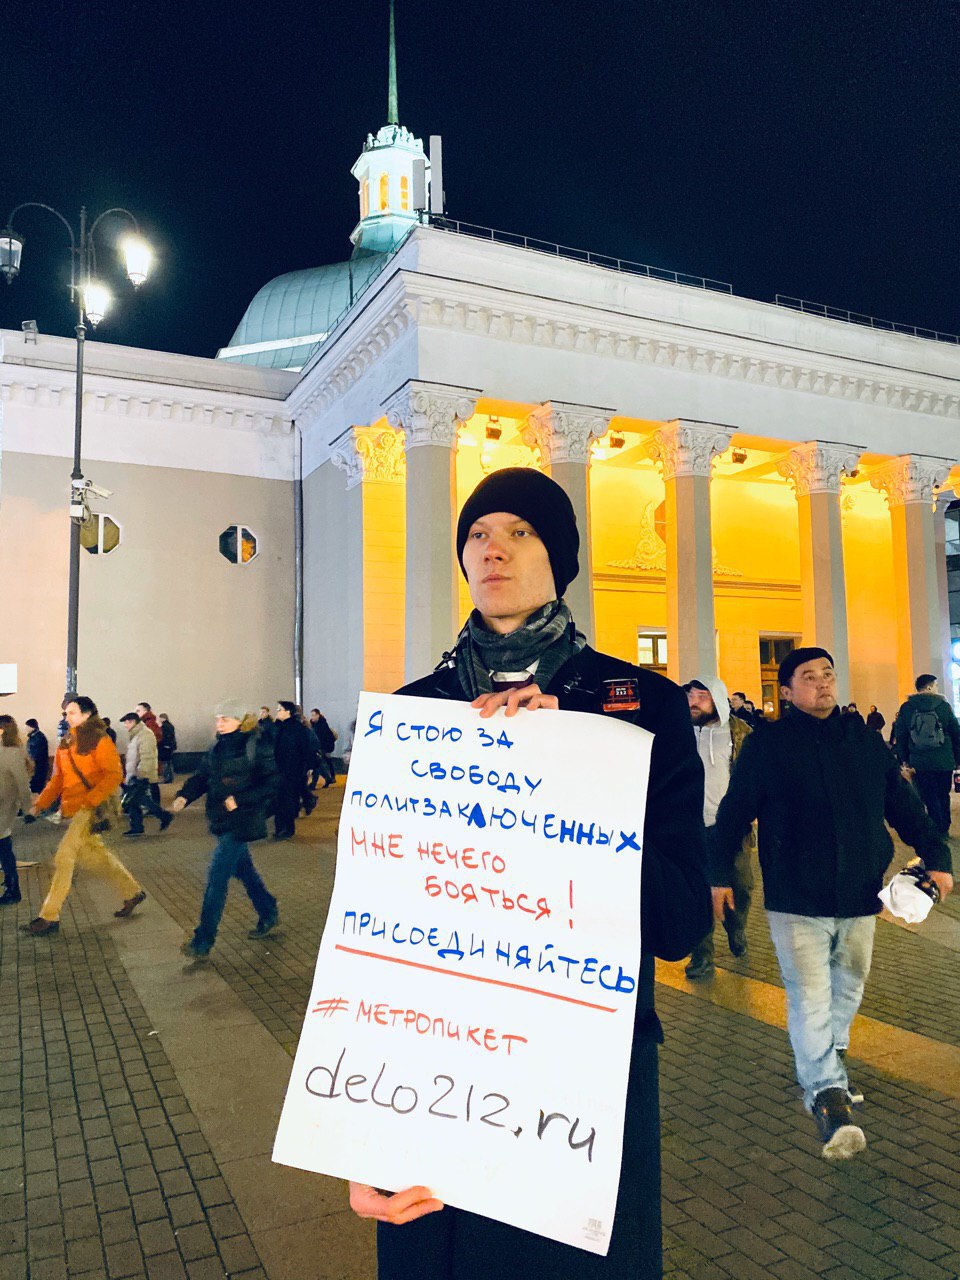 Я СТОЮ ЗА
СВОБОДУ
ПОЛИТЗАКЛЮЧЕННЫХ
МНЕ НЕЧЕГО
БОЯТЬСЯ!
ПРИСОЕДИНЯЙТЕСЬ
#МЕТРОПИКЕТ
delo212.ru